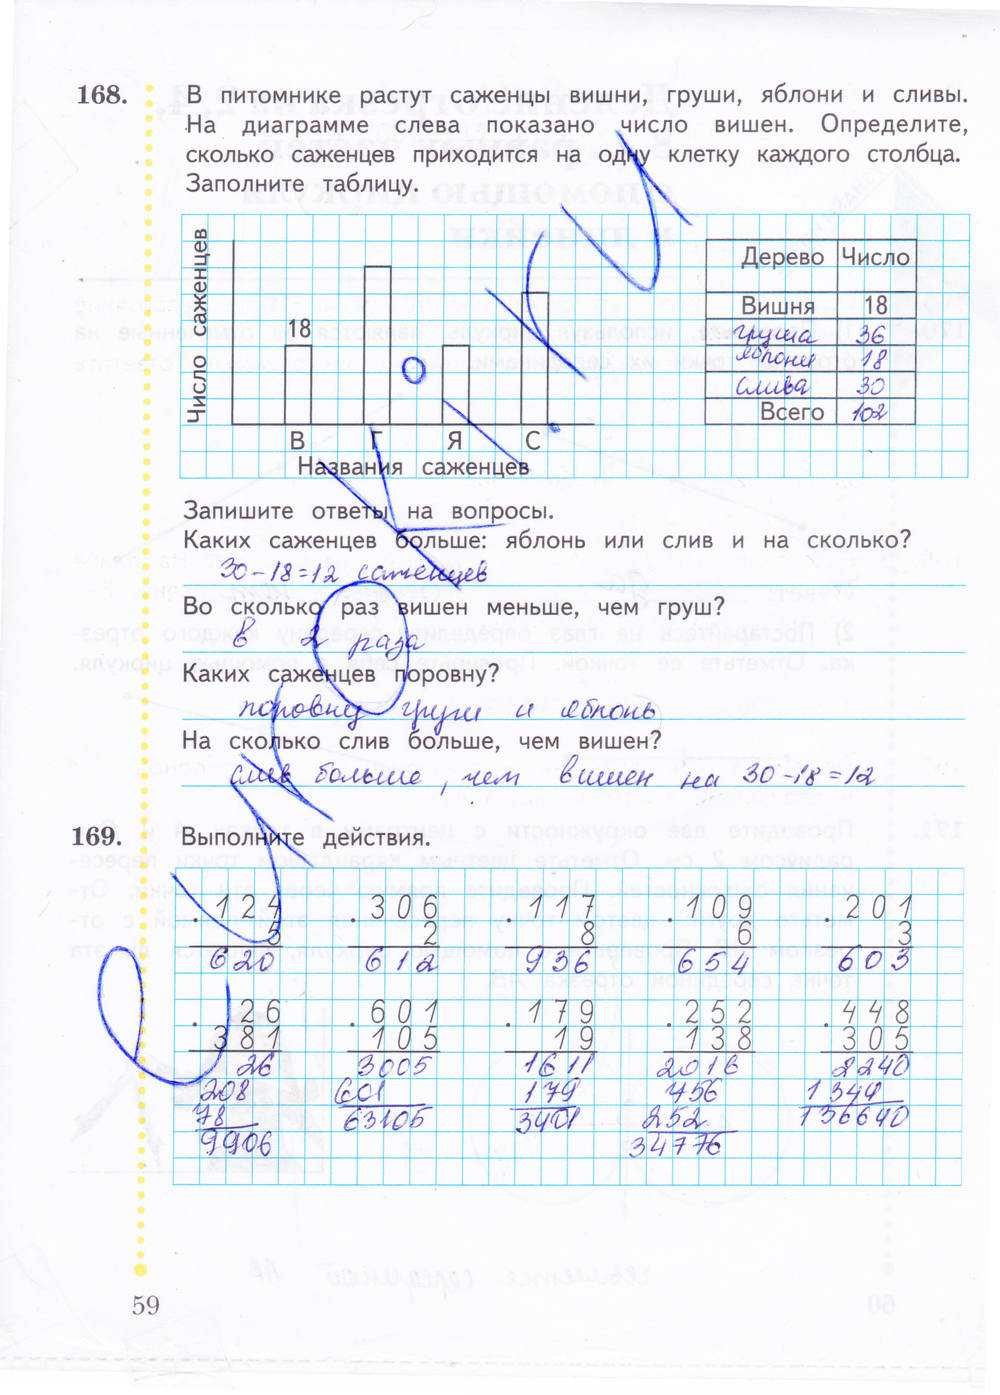 168. В питомнике растут саженцы вишни, груши, яблони и сливы.
На диаграмме слева показано число вишен. Определите,
сколько саженцев приходится на одну клетку каждого столбца.
Заполните таблицу.
Число саженцев
18
В Г Я С
Названия саженцев
Дерево Число
Вишня 18
груша 36
яблони 18
слива 30
Всего 102
Запишите ответы на вопросы.
Каких саженцев больше: яблонь или слив и на сколько?
30-18=12 саженцев
Во сколько раз вишен меньше, чем груш?
в 2 раза
Каких саженцев поровну?
поровну груши и яблонь
На сколько слив больше, чем вишен?
слив больше, чем вишен на 30-18=12
169. Выполните действия.
124 · 306 · 117 · 109 · 201
5 2 8 6 3
620 612 936 654 603
· 26 · 601 · 179 · 252 · 448
381 105 19 138 305
26 3005 1611 2016 2240
208 601 179 756 1344
78 63105 3401 252 136640
9906 34776
59